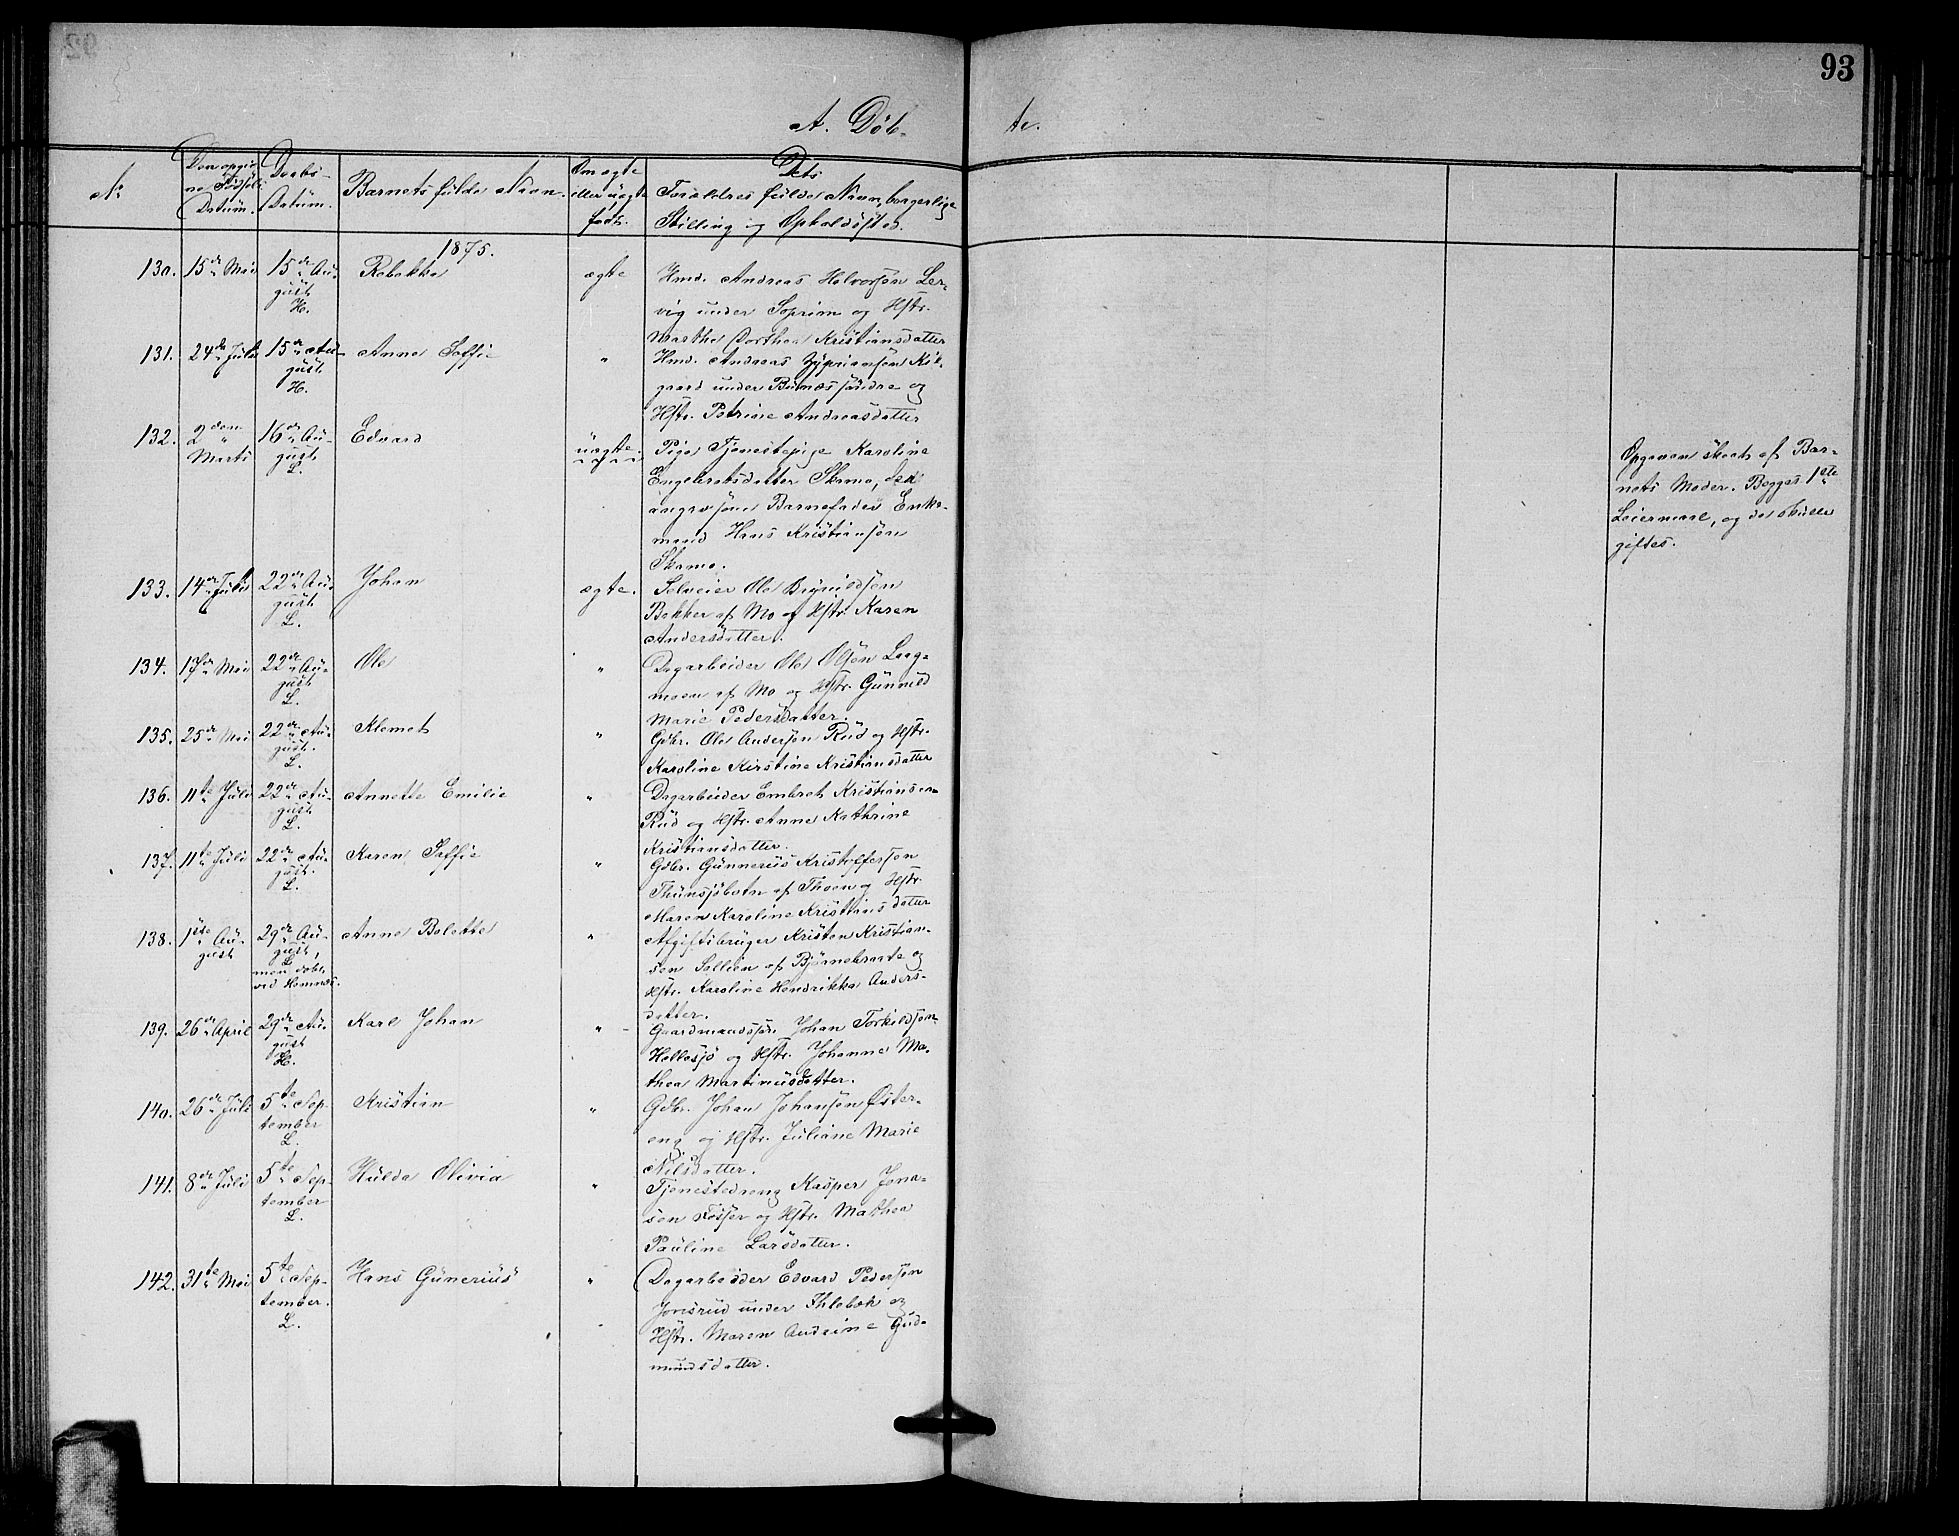 93
A. Døb-
te.
No
Den opgiv-
ne Fødsels-
Datum.
Daabs-
Datum.
Barnets fulde Navn.
Om ægte
eller uægte
født.
Dets
Forældres fulde Navn, borgerlige
Stilling og Opholdssted.
1875.
130. 15de Mai 15de Au-
gust
H.
Rebekka
ægte
Hmd. Andreas Halvorsøn Ler-
vig under Soprim og Hstr.
Marthe Dorthea Kristiansdatter
131. 24de Juli 15de Au-
gust
H.
Anne Soffie
"
Hmd. Andreas Zyprianson Kik-
gaard under Bunæs søndre og
Hstr. Petrine Andreasdatter
132. 2den
Marts
16de Au-
gust
L.
Edvard
uægte.
Pige Tjenestepige Karoline
Engebretsdatter Skamo, den
angivsone Barnefader Enke-
mand Hans Kristiansøn
Skamo.
Opgaven skeet af Bar-
nets Moder. Begges 1ste
Leiermaal, og de skulle
giftes.
133. 14de Juli 22de Au-
gust
L.
Johan
ægte.
Selveier Ole Brynildsøn
Bekker af Mo og Hstr. Karen
Andersdatter.
134. 17de Mai 22de Au-
gust
L.
Ole
"
Dagarbeider Ole Olsøn Laag-
moen af Mo og Hstr. Gunnild
Marie Pedersdatter.
135. 25de Mai 22de Au-
gust.
L.
Klemet
"
Gdbr. Ole Andersøn Rud og Hstr.
Karoline Kirstine Kristiansdatter
136. 11te Juli 22de Au-
gust
L.
Annette Emilie
"
Dagarbeider Embret Kristiansen
Rud og Hstr. Anne Kathrine
Kristiansdatter.
137. 11te Juli 22de Au-
gust.
L.
Karen Soffie
"
Gdbr. Gunnerius Kristoffersøn
Thunsjøbotn af Thoen og Hstr.
Maren Karoline Kristiansdatter
138. 1ste Au-
gust
29de Au-
gust,
L
men døbt
ved Hemnæs.
Anne Bolette
"
Afgiftsbruger Kristen Kristian-
sen Sollien af Bjørnebraate og
Hstr. Karoline Hendrikka Anders-
datter.
139. 26de April 29de Au-
gust
H.
Karl Johan
"
Gaardmandssøn Johan Torkildsøn
Hellesjø og Hstr. Johanne Ma-
thea Martiniusdatter.
140. 26de Juli 5te Sep-
tember
L.
Kristian
"
Gdbr. Johan Johansøn Øster-
eng og Hstr. Juliane Marie
Nilsdatter.
141. 8de Juli 5te Sep-
tember
L.
Hulda Olivia
"
Tjenestedreng Kasper Jona-
sen Fosser og Hstr. Mathea
Pauline Larsdatter.
142. 31te Mai 5te Sep-
tember.
L.
Hans Gunerius
"
Dagarbeider Edvard Pedersøn
Jonsrud under Ihlebæk og
Hstr. Maren Andrine Gud-
mundsdatter.